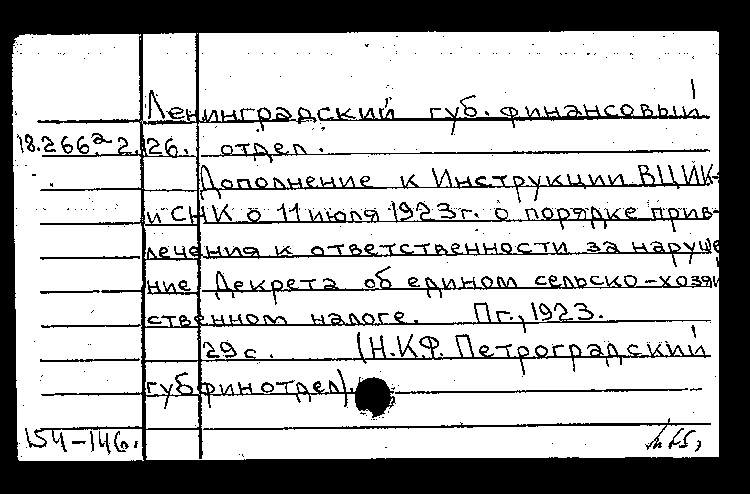 Ленинградский губ. финансовый
18.266ª 2.126. отдел.
Дополнение к Инструкции ВЦИК-
и СНК о 11 июля 1923г. о порядке прив-
лечения к ответственности за наруше
ние Декрета об едином сельско-хозяй
ственном налоге. Пг., 1923.
29 с. (Н.К.Ф. Петроградский
губфинотдел).
154-146.